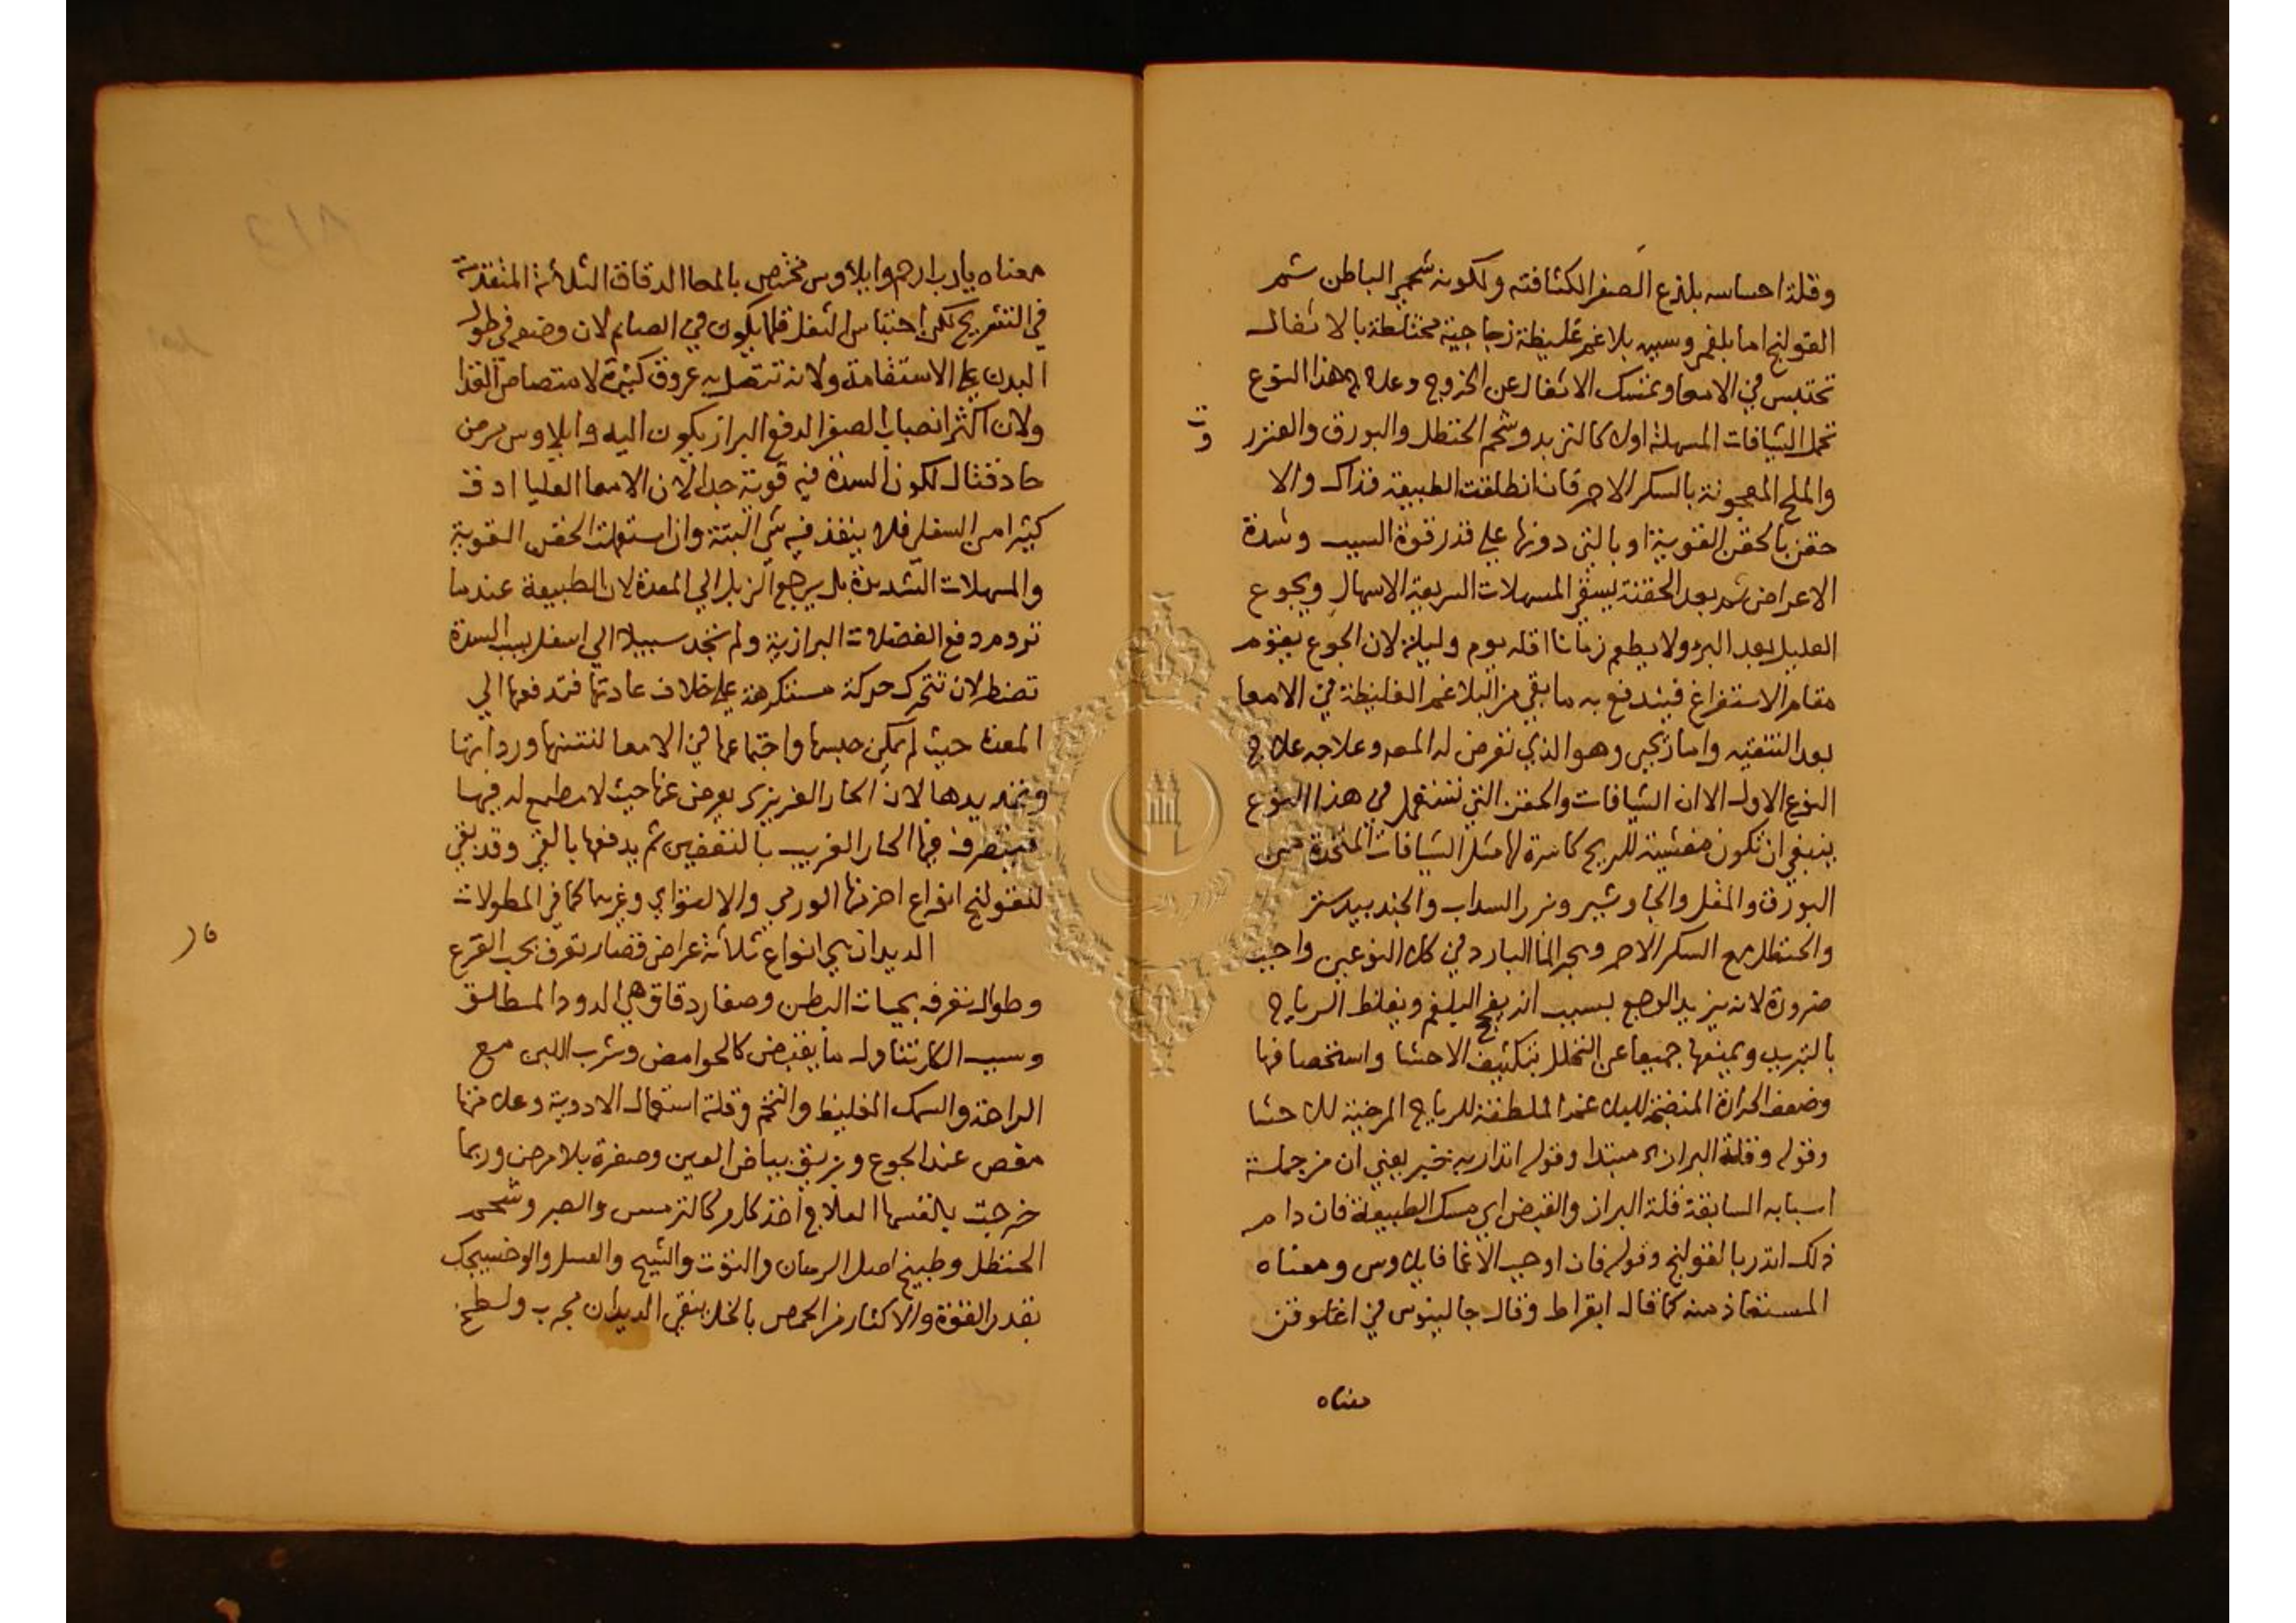 وقلة احساسه بلذع الصفرا لكثافته ولكونه شحمي الباطن ثم
القولنج اما بلغمي وسببه بلاغم غليظة زجاجية مختلطة بالاثفال
تحتبس في الامعا وتمسك الاثفال عن الخروج وعلاج هذا النوع
تحمل الشيافات المسهلة اولا كالتربد وشحم الحنظل والبورق والعنزر
وت
والملح المعجونة بالسكر الاحمر فان انطلقت الطبيعة فذاك والا
حقن بالحقن القوية او بالتي دونها علي قدر قوة السبب وشدة
الاعراض ثم بعد الحقنة يسقي المسهلات السريعة الاسهال ويجوع
العليل بعد البرء ولا يطعم زمانا اقله يوم وليلة لان الجوع يقوم
مقام الاستفراغ فيندفع به ما بقي من البلاغم الغليظة في الامعا
بعد التنقيه واما ريحي وهو الذي تعرض له المص وعلاجه علاج
النوع الاول الا ان الشيافات والحقن التي تستعمل في هذا النوع
ينبغي ان تكون مفشية للريح كاسرة لها مثل الشيافات المتخذة من
البورق والمقل والجاوشير وبزر السداب والجندبيدستر
والحنظل مع السكر الاحمر وهجر الما البارد في كلا النوعين واجب
ضرورة لانه يزيد الوجع بسبب انه يفج البلغم ويغلظ الرياح
بالتبريد ويمنعها جميعا عن التحلل بتكثيف الاحشا واستخصافها
وضعف الحرارة المنضجة للبلاغم الملطفة للرياح المرخية للاحشا
وقوله وقلة البراز مبتدا وقوله انذار به خبر يعني ان من جملة
اسبابه السابقة قلة البراز والقبض اي مسك الطبيعة فان دام
ذلك انذر بالقولنج وقوله فان اوجب الاغما فايلاوس ومعناه
المستعاذ منه كما قال ابقراط وقال جالينوس في اغلوقن
معناه
معناه يارب ارحم وايلاوس مختص بالمعا الدقاق الثلاثة المتقدمة
في التشريح لكن احتباس الثفل قلما يكون في الصايم لان وضعه في طول
البدن علي الاستقامة ولانه تتصل به عروق كثيرة لامتصاص الغذا
ولان اكثر انصباب الصفرا لدفع البراز يكون اليه وايلاوس مرض
حاد قتال لكون السدة فيه قوية جدا لان الامعا العليا ادق
كثيرا من السفلي فلا ينفذ فيه شي البتة وان استعملت الحقن القوية
والمسهلات الشديدة بل يرجع الزبل الي المعدة لان الطبيعة عندما
تروم دفع الفضلات البرازية ولم تجد سبيلا الي اسفل لسبب السدة
تضطر لان تتحرك حركة مستكرهة علي خلاف عادتها فتدفعها الي
المعدة حيث لم يمكن حبسها واجتماعها في الامعا لنتنها ورداتها
وتمديدها لان الحار الغريزي يعرض عنها حيث لا مطمع له فيها
فيتصرف فيها الحار الغريب بالتعفين ثم يدفعها بالقي وقد بقي
للقولنج انواع اخر منها الورمي والالتواي وغيرهما كما في المطولات
الديدان هي انواع ثلاثة عراض قصار تعرف بحب القرع
فا ر
وطوال تعرفه بحيات البطن وصغار دقاق هي الدود المطلق
وسبب الكل تناول ما يقبض كالحوامض وشرب اللبن مع
الراحة والسمك الغليظ والتخم وقلة استعمال الادوية وعلامتها
مغص عند الجوع وبريق بياض العين وصفرة بلا مرض وربما
خرجت بانفسها العلاج اخذ كل مر كالترمس والصبر وشحم
الحنظل وطبيخ اصل الرمان والتوت والشيح والعسل والوخشيجك
بقدر القوة والاكثار من الحمص بالخل ينقي الديدان مجرب ولطخ